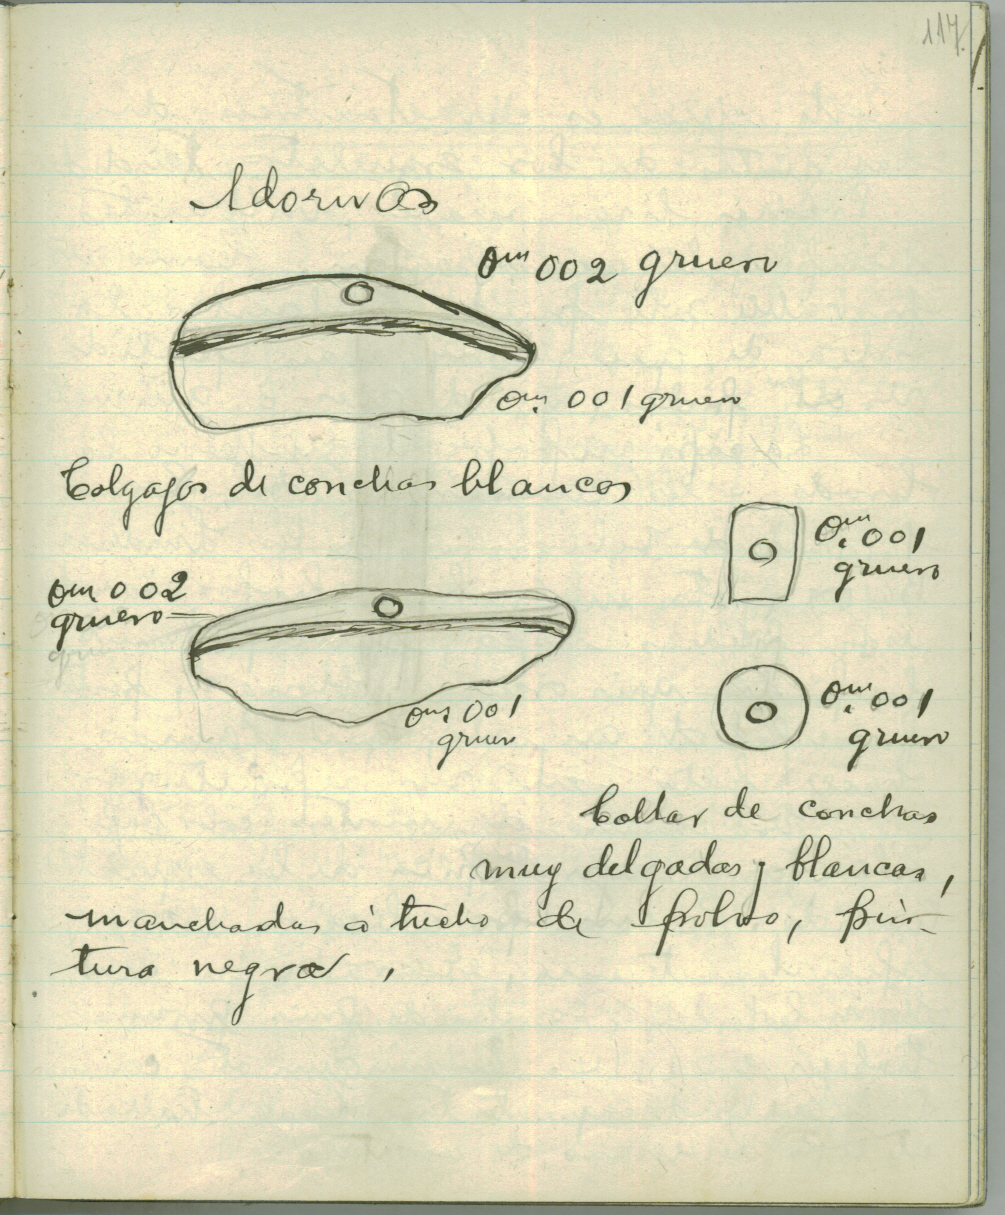 117.
Adornos
0m 002 grueso
0m. 001 grueso
Colgajos de conchas blancos
0m.001
grueso
0m 002
grueso
0m.001
grueso
0m 001
grueso
Collar de conchas
muy delgadas y blancas,
manchadas á trecho de polvo, pin-
tura negra,